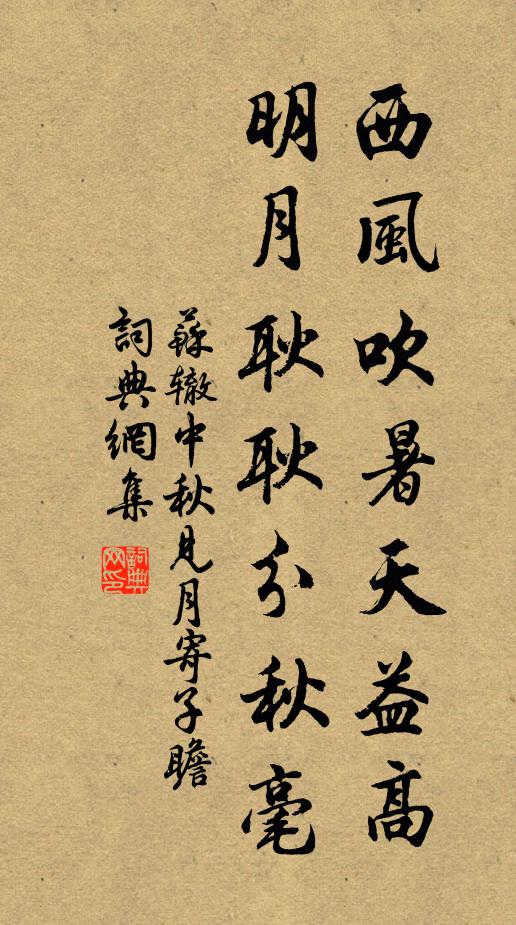 西風吹暑天益高
明月耿耿分秋毫
蘇辙中秋見月寄子瞻
詞典網集
詞典網印